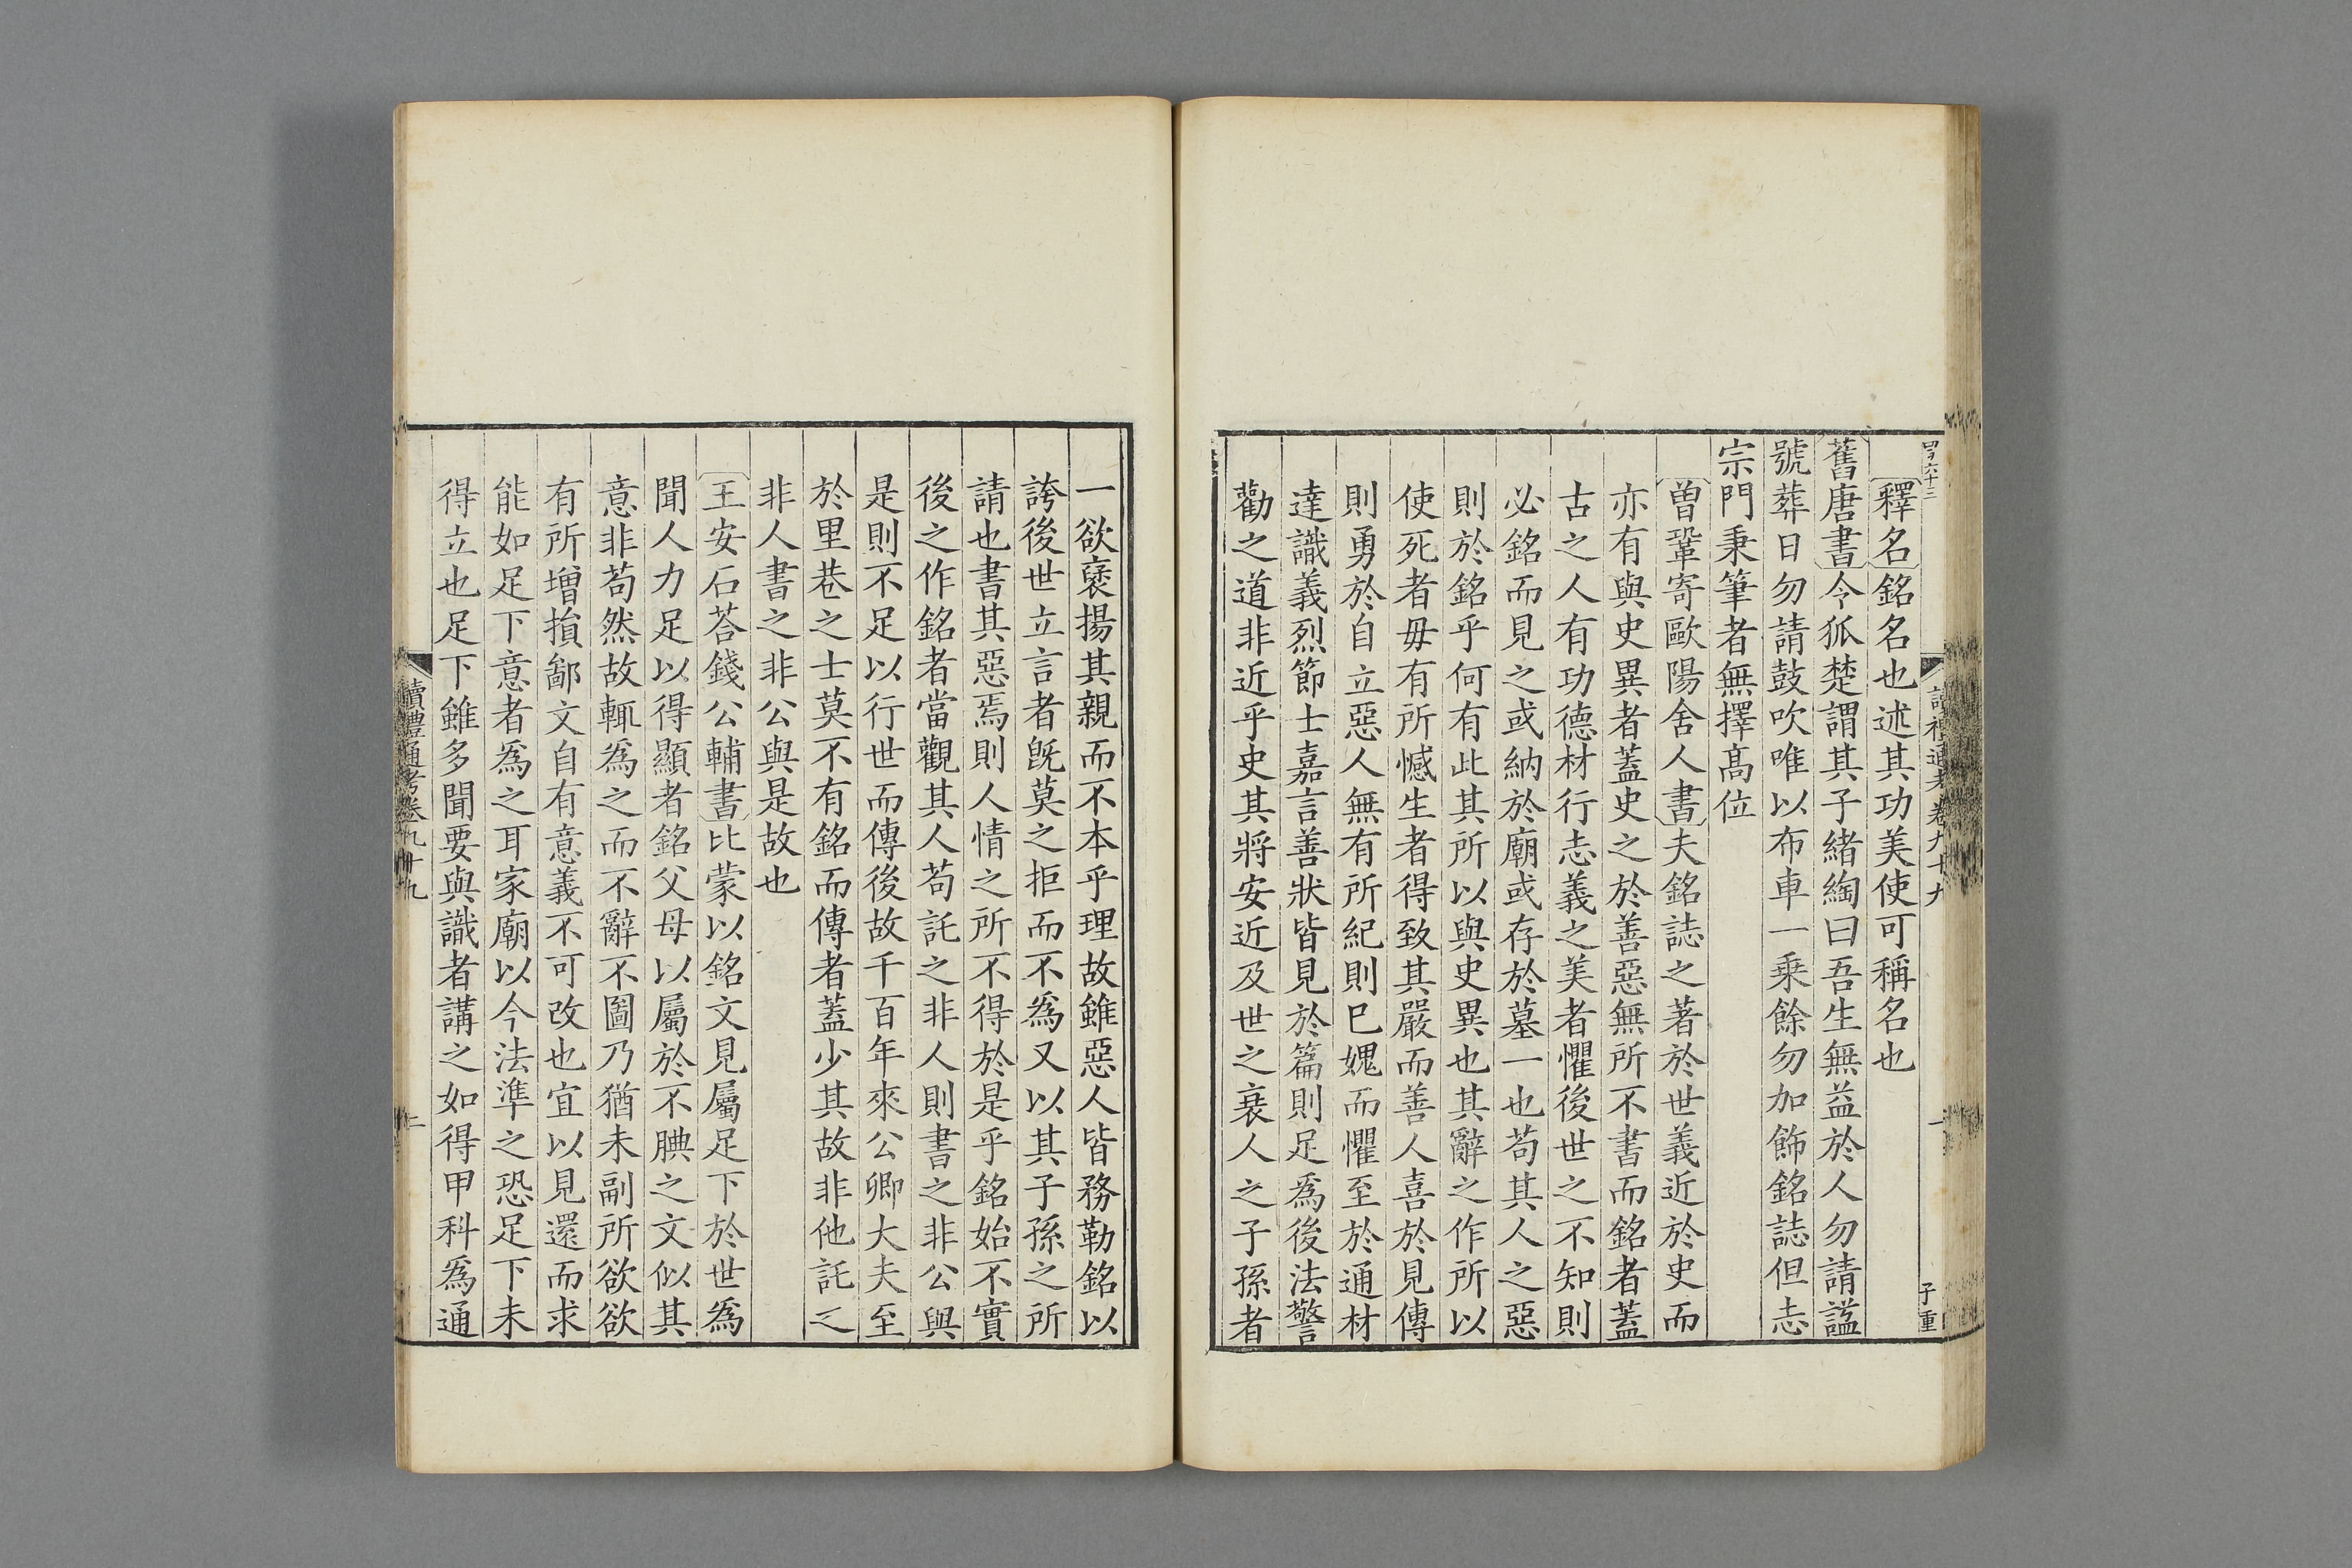 讀禮通考卷九十九
一
子重
釋名銘名也述其功美使可稱名也
舊唐書令狐楚謂其子緒綯曰吾生無益於人勿請諡
號葬日勿請鼓吹唯以布車一乘餘勿加飾銘誌但志
宗門秉筆者無擇高位
曾鞏寄歐陽舍人書夫銘誌之著於世義近於史而
亦有與史異者蓋史之於善惡無所不書而銘者蓋
古之人有功德材行志義之美者懼後世之不知則
必銘而見之或納於廟或存於墓一也苟其人之惡
則於銘乎何有此其所以與史異也其辭之作所以
使死者毋有所憾生者得致其嚴而善人喜於見傳
則勇於自立惡人無有所紀則巳媿而懼至於通材
達識義烈節士嘉言善狀皆見於篇則足為後法警
勸之道非近乎史其將安近及世之衰人之子孫者
一欲褒揚其親而不本乎理故雖惡人皆務勒銘以
誇後世立言者旣莫之拒而不為又以其子孫之所
請也書其惡焉則人情之所不得於是乎銘始不實
後之作銘者當觀其人苟託之非人則書之非公與
是則不足以行世而傳後故千百年來公卿大夫至
於里巷之士莫不有銘而傳者蓋少其故非他託之
非人書之非公與是故也
王安石荅錢公輔書比蒙以銘文見屬足下於世為
聞人力足以得顯者銘父母以屬於不腆之文似其
意非苟然故輒為之而不辭不圖乃猶未副所欲欲
有所增損鄙文自有意義不可改也宜以見還而求
能如足下意者為之耳家廟以今法準之恐足下未
得立也足下雖多聞要與識者講之如得甲科為通
讀禮通考卷九十九
二